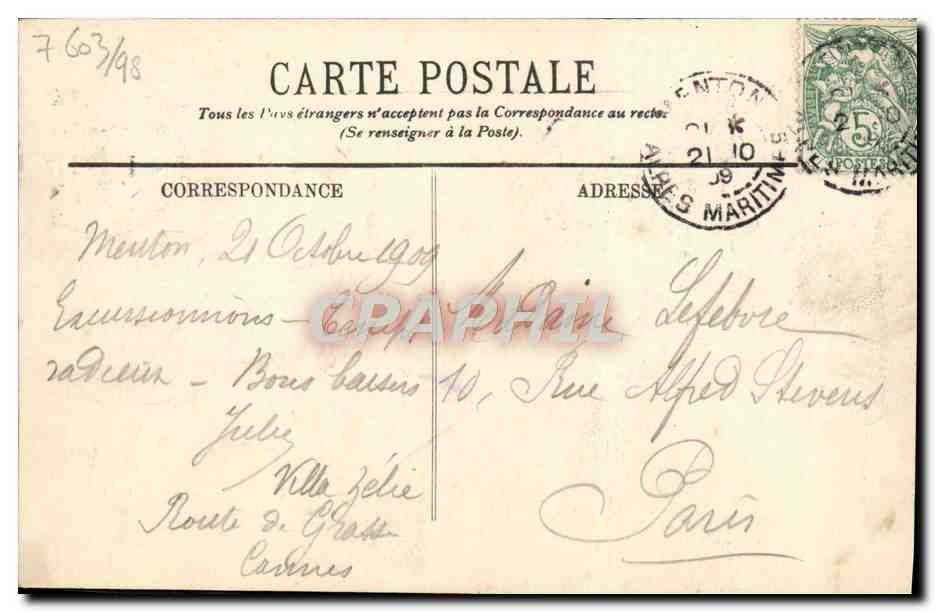 7603/98
CARTE POSTALE
Tous les Pays étrangers n'acceptent pas la Correspondance au recto
(Se renseigner à la Poste).
MENTON
21 10
09
ALPES MARITIMES
5c
POSTES
CORRESPONDANCE
ADRESSE
Menton, 21 Octobre 1909
Excursionnons - Temps
radieux - Bons baisers
Julie
Villa Zélie
Route de Grasse
Cannes
Madame Lefebvre
10, Rue Alfred Stevens
Paris
CPARPHIL